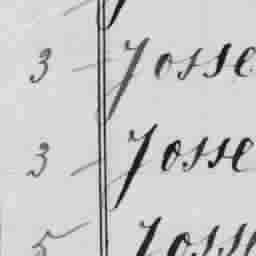 3 Josse
3 Josse
5 Josse